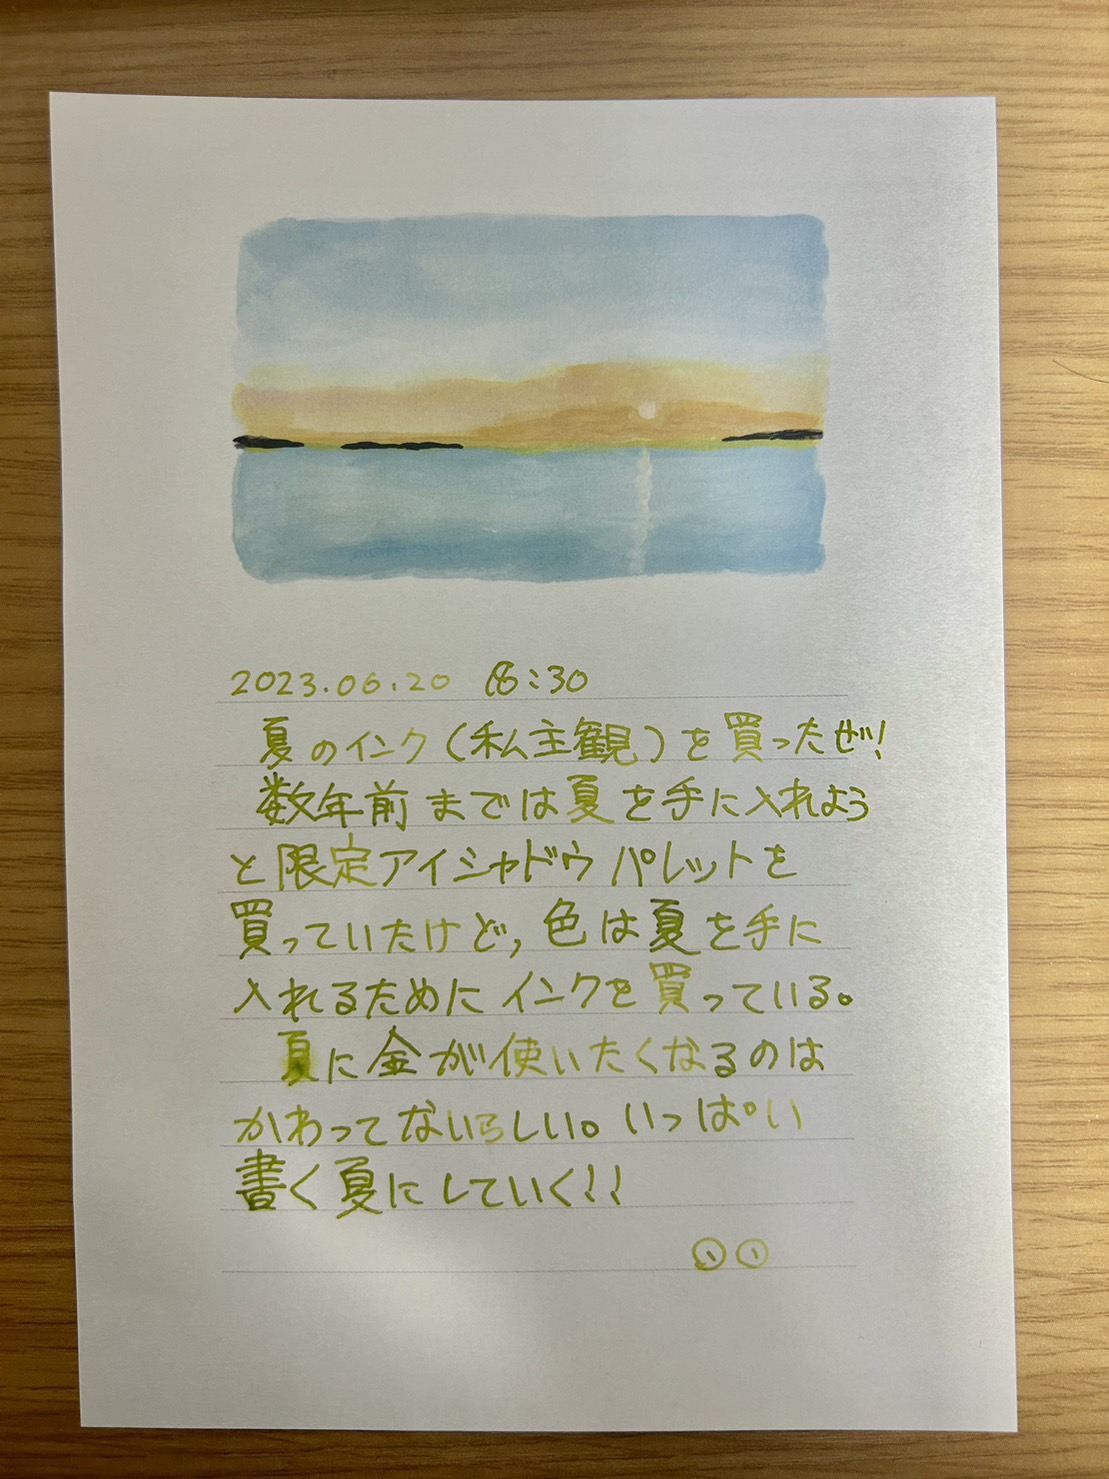 2023.06.20 :30
夏のインク(私主観)を買ったぜ!
数年前までは夏を手に入れよう
と限定アイシャドウパレットを
買っていたけど, 色は夏を手に
入れるためにインクを買っている。
夏に金が使いたくなるのは
かわってないらしい。いっぱい
書く夏にしていく!!